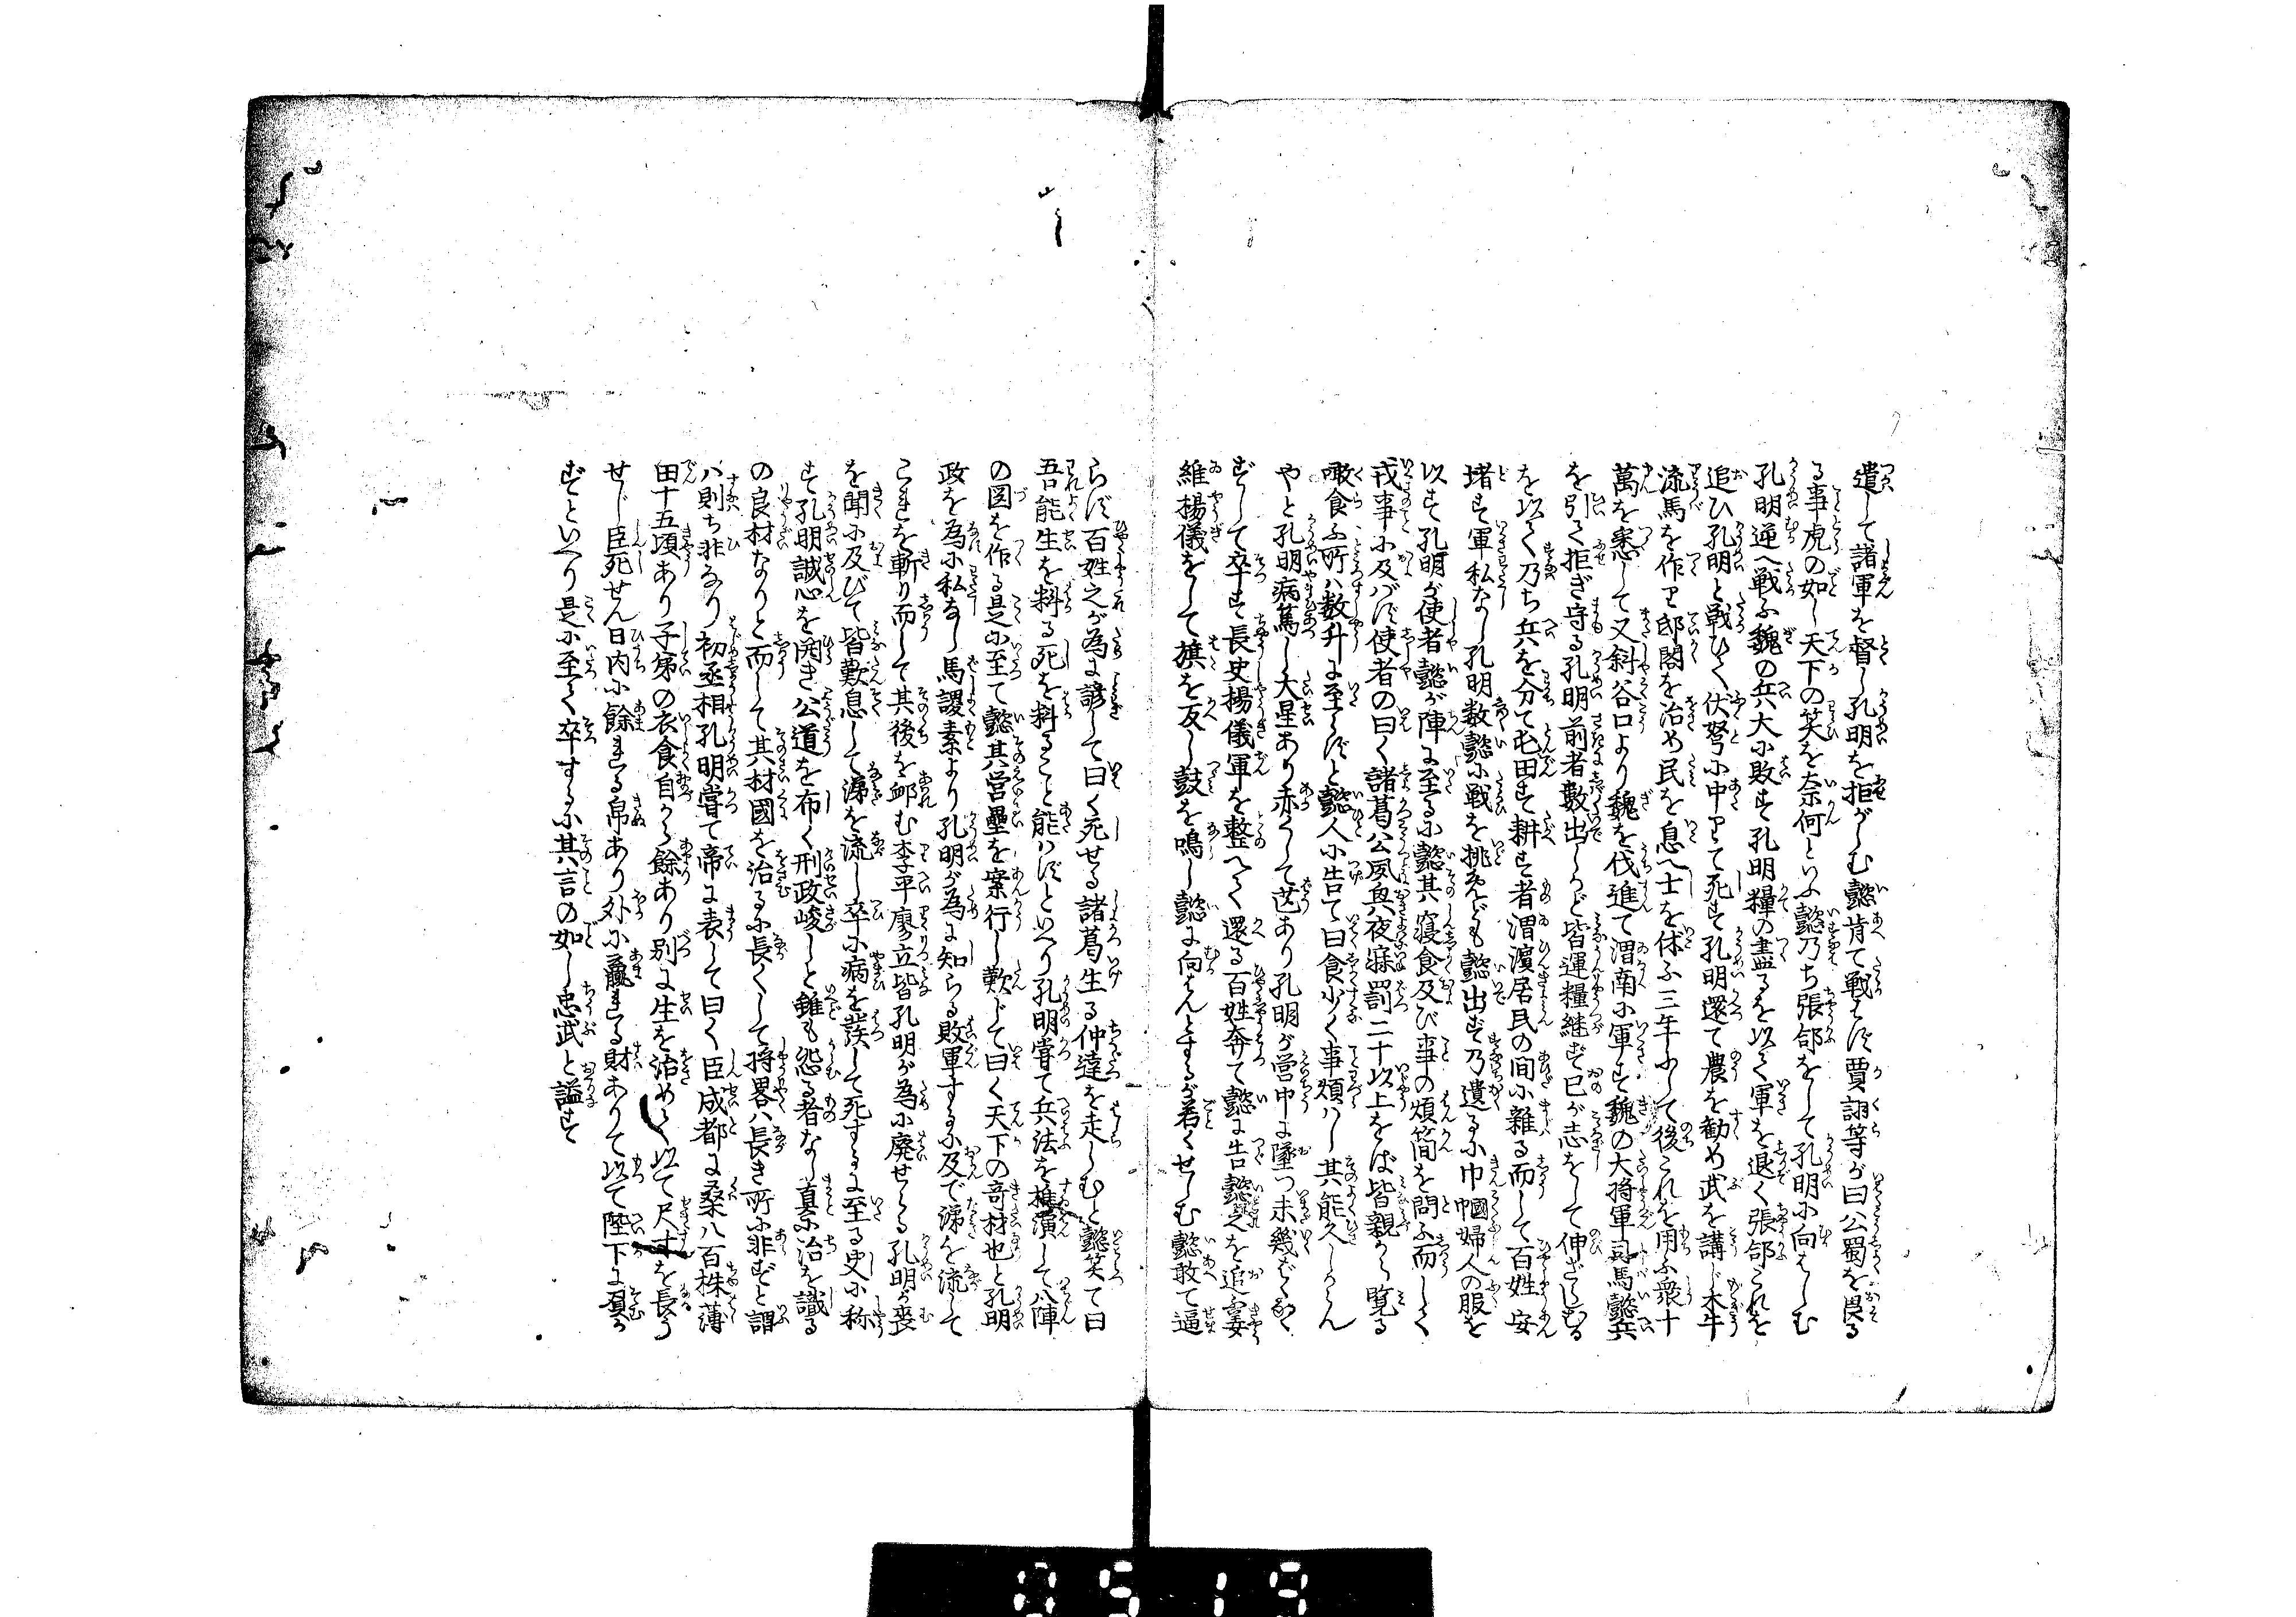 遣して諸軍を督し孔明を拒がしむ懿肯て戦はず賈詡等が曰公蜀を畏る
る事虎の如し天下の笑を奈何といふ懿乃ち張郃をして孔明に向はしむ
孔明逆へ戦ふ魏の兵大に敗す孔明糧の盡るを以て軍を退く張郃これを
追ひ孔明と戦ひて伏弩に中りて死す孔明還て農を勧め武を講じ木牛
流馬を作り邸閣を治め民を息へ士を休ふ三年にして後これを用ふ衆十
萬を悉して又斜谷口より魏を伐進て渭南に軍す魏の大将軍司馬懿兵
を引て拒ぎ守る孔明前者數出しかど皆運糧継ず己が志をして伸ざらしむる
を以て乃ち兵を分て屯田す耕す者渭濱居民の間に雑る而して百姓安
堵す軍私なし孔明数懿に戦を挑めども懿出ず乃遺るに巾幗婦人の服を
以す孔明が使者懿が陣に至るに懿其寝食及び事の煩簡を問ふ而して
戎事に及バず使者の曰く諸葛公夙興夜寐罰二十以上をば皆親から覧る
噉食ふ所ハ数升に至らずと懿人に告て曰食少く事煩ハし其能久しからん
やと孔明病篤し大星あり赤くして芒あり孔明が営中に墜つ未幾ばくならず
ずして卒す長史楊儀軍を整へて還る百姓奔て懿に告懿之を追ふ姜
維楊儀をして旗を反し鼓を鳴し懿に向はんとするが若くせしむ懿敢て逼
らず百姓之が為に諺して曰く死せる諸葛生る仲達を走しむと懿笑て曰
吾能生を料る死を料ること能ハずといへり孔明嘗て兵法を推演して八陣
の図を作る是に至て懿其営壘を案行し歎じて曰く天下の奇材也と孔明
政を為に私なし馬謖素より孔明が為に知らる敗軍するに及で涕を流して
これを斬り而して其後を卹む李平廖立皆孔明が為に廃せらる孔明が喪
を聞に及びて皆歎息して涕を流し卒に病を発して死するに至る史に称
す孔明誠心を開き公道を布く刑政峻しと雖も怨る者なし真に治を識る
の良材なりと而して其材國を治るに長くして将畧ハ長き所に非ずと謂
ハ則ち非なり初丞相孔明嘗て帝に表して曰く臣成都に桑八百株薄
田十五頃あり子弟の衣食自から餘あり別に生を治めて以て尺寸を長う
せじ臣死せん日内に餘れる帛あり外に贏れる財ありて以て陛下に負か
ずといへり是に至て卒するに其言の如し忠武と謚す